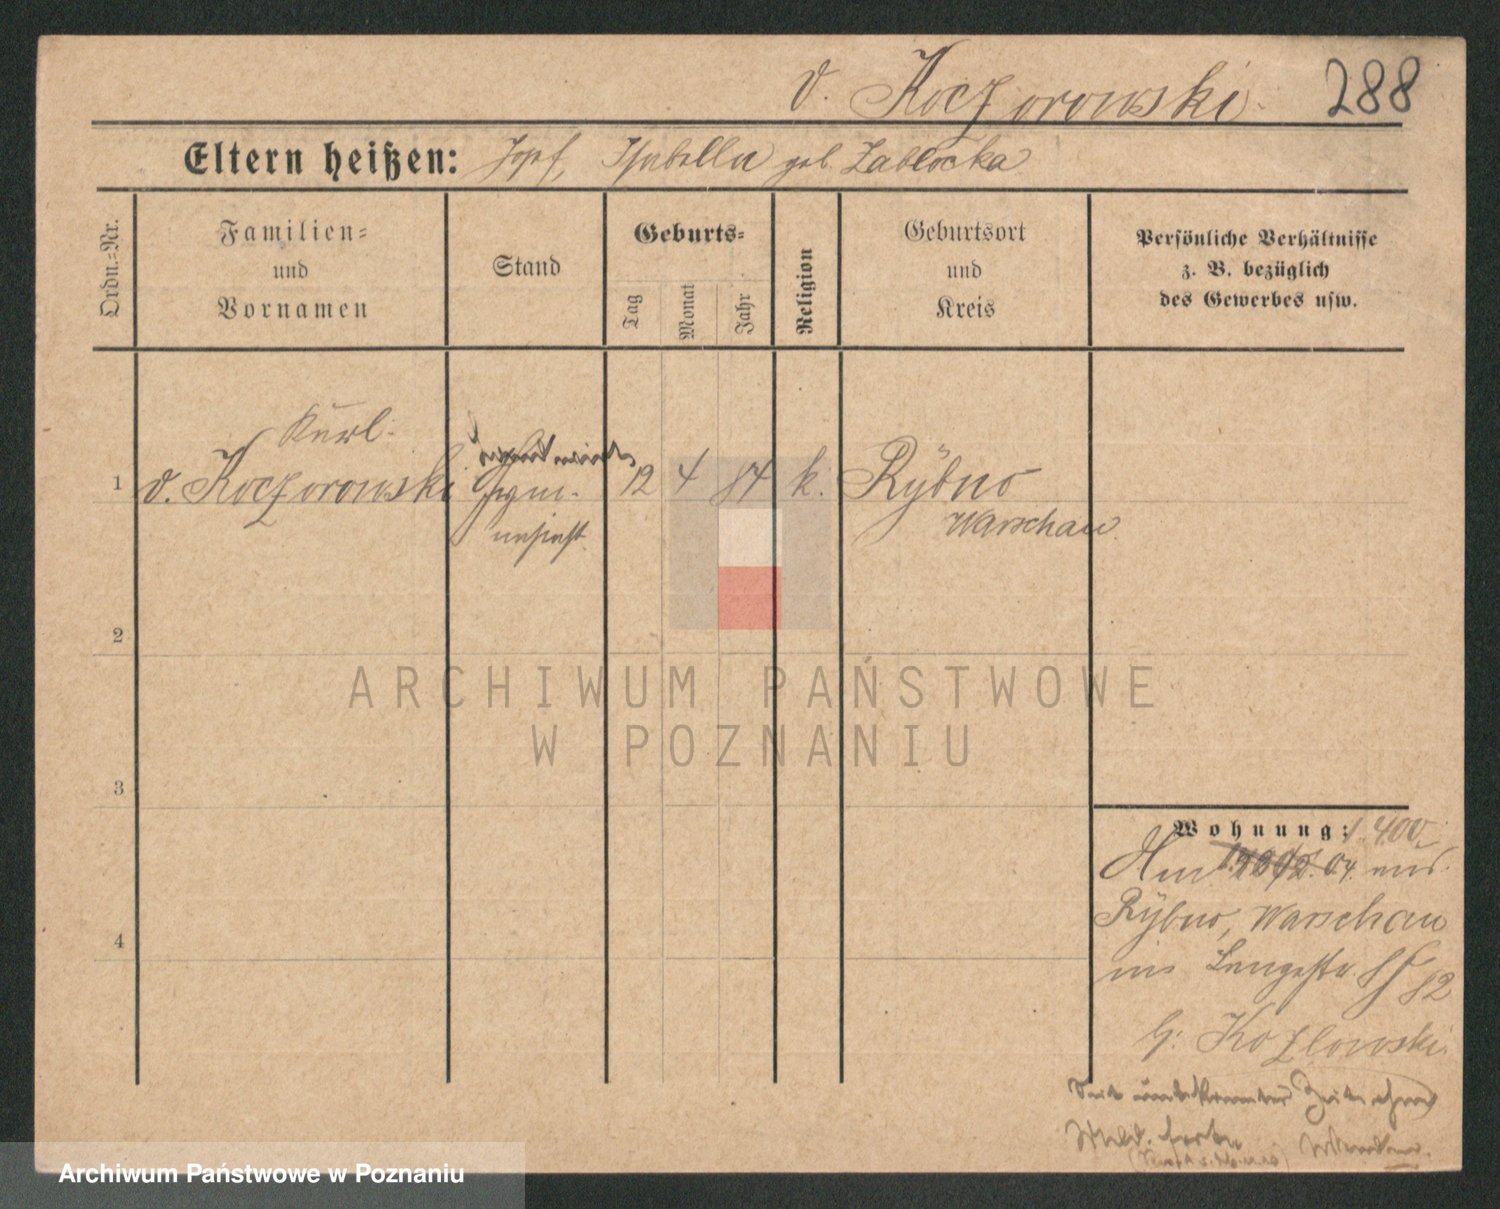 v. Koczorowski 288
Eltern heißen: Josef, Isabella geb. Zabłocka
Ordn.=Nr.
Familien=
und
Vornamen
Stand
Geburts=
Tag
Monat
Jahr
Religion
Geburtsort
und
Kreis
Persönliche Verhältnisse
z. B. bezüglich
des Gewerbes usw.
Karl
1 v. Koczorowski 12 4 84 k. Rybno
Warschau
2
3
4
Wohnung: 1.400
04. aus
Rybno, Warschau
Langestr.
b: Kozlowski
Seit unbekannter Zeit ohne
ARCHIWUM PAŃSTWOWE
W POZNANIU
Archiwum Państwowe w Poznaniu